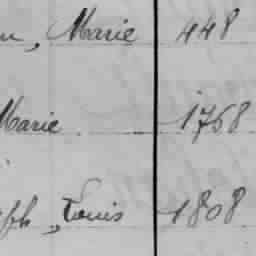 Marie 448
Marie 1768
ph, Louis 1808